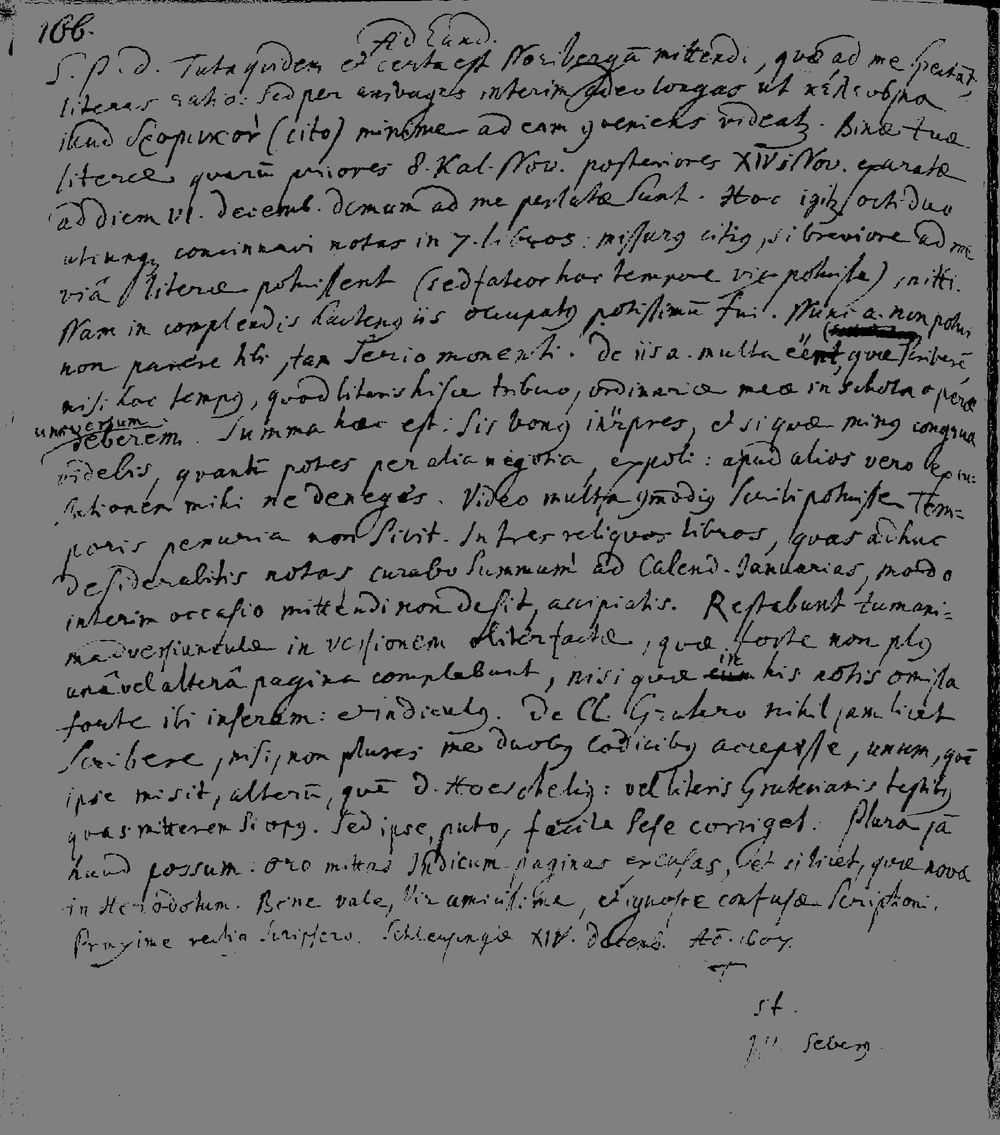 166.
Ad Eund.
S. P. d. Tuta quidem et certa est Noribergā mittendi, quæ ad me spectāt
literas ratio: sed per anivages interim adeo longas ut κέλευσμα
illud (cito) minime ad eam gveniens videatz. Binæ tuæ
literæ quarū priores 8. Kal. Nov. posteriores XIV Nov. exaratæ
ad diem VI. decemb. demum ad me perlatæ sunt. Hoc igitz octiduo
utcunqz concinnavi notas in 7. libros: missurg citig, si breviore ad me
viâ literæ potuissent (sed fateor hoc tempore vix potuisse) mitti.
Nam in complendis hacteng iis occupatg potissimū fui. Nunc a. non potui
non parere tibi, tam serio monenti. De iis a. multa eēnt, quæ scriberē,
nisi hoc tempg, quod literis hisce tribuo, ordinariæ meæ in schola operæ
universum deberem. Summa hæc est: Sis bong inrpres, et si quæ ming congrua
videbis, quantū potes per alia negotia, expoli: apud alios vero excu-
sationem mihi ne deneges. Video multa gmodig scribi potuisse Tem=
poris penuria non sivit. In tres reliquos libros, quas adhuc
desiderabitis notas curabo summum ad Calend. Januarias, modo
interim occasio mittendi non desit, accipiatis. Restabunt tum ani=
madversiunculæ in versionem obiter factæ, quæ forte non plg
unâ vel alterâ pagina complebunt, nisi quæ in his notis omissa
forte ibi inseram: et indiculg. De Cl. Grutero nihil jam licet
scribere, nisi, non plures me duobg codicibg accepisse, unum, quē
ipse misit, alterū, quē D. Hoeschelig: vel literis Gruterianis testibg
quas mitterem si opg. Sed ipse, puto, facile sese corriget. Plura jā
haud possum: oro mittas Indicum paginas excusas, et si licet, quæ nova
in Herodotum. Bene vale, Vir amicissime, et ignosce confusæ scriptioni.
Proxime rectig scripsero. Schleusingæ XIV. decemb. Aō. 1607.
st.
Seberg